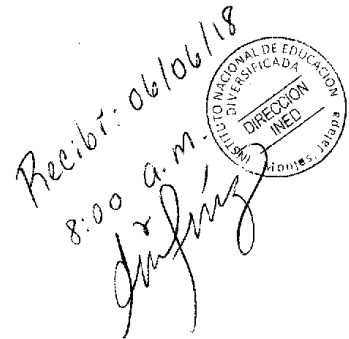 Recibí: 06/06/18
8:00 a.m.
INSTITUTO NACIONAL DE EDUCACION
DIVERSIFICADA
DIRECCION
INED
Monjas, Jalapa